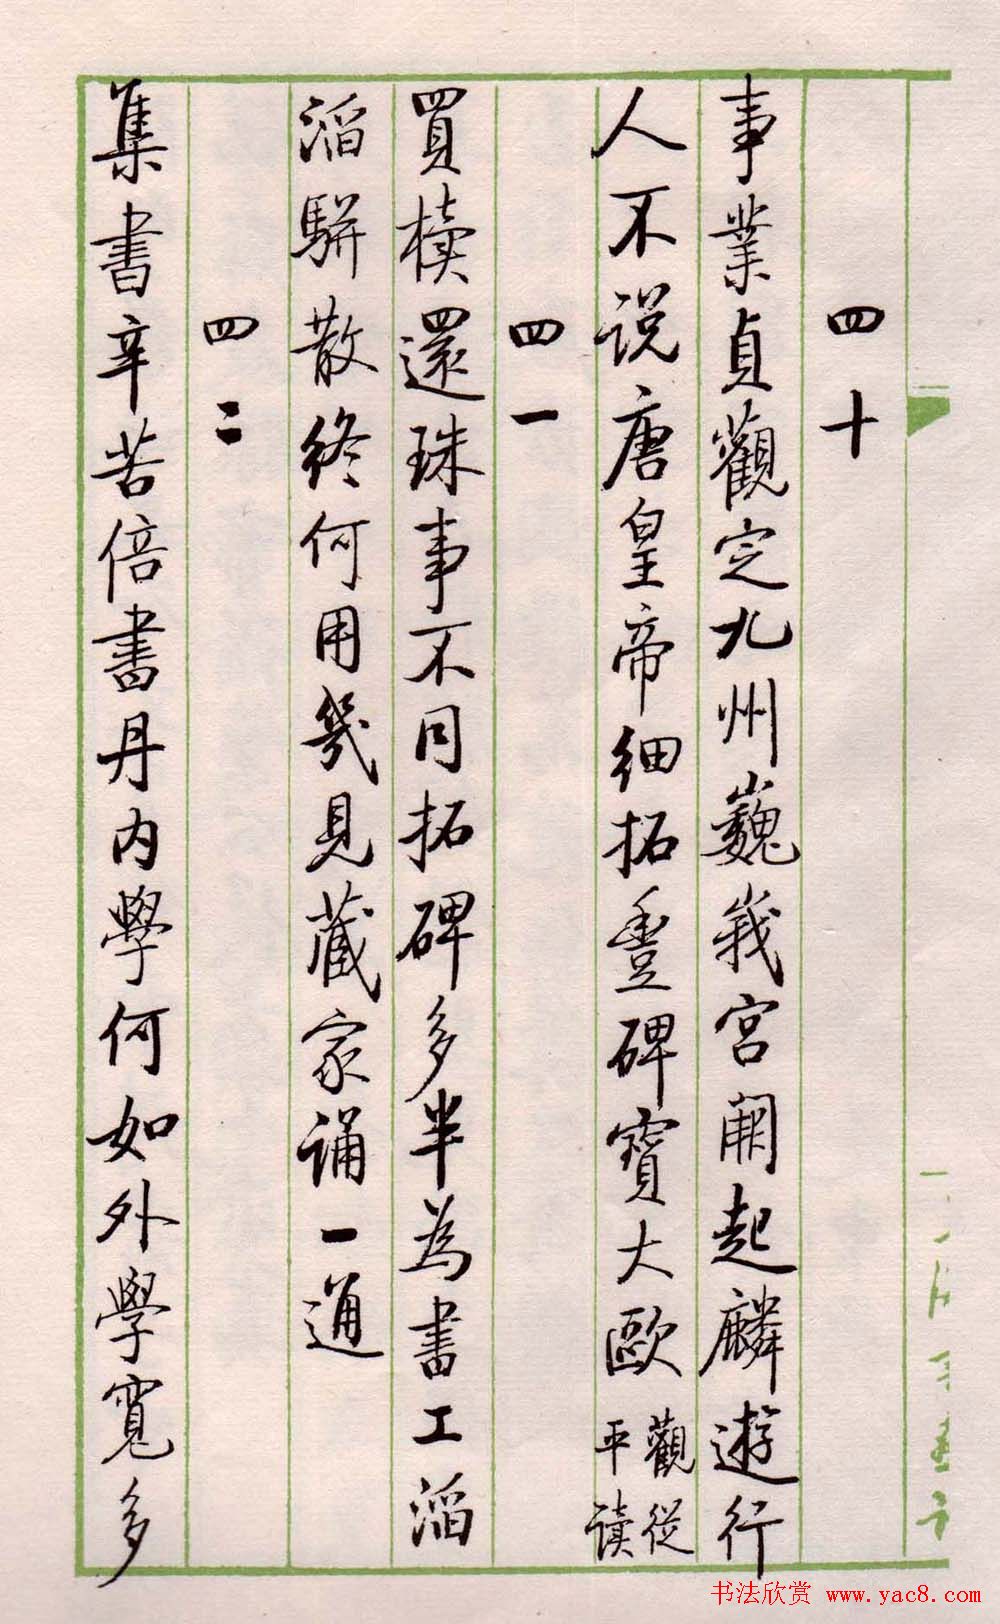 四十
事業貞觀定九州巍峩宮闕起麟遊行
人不说唐皇帝细拓豐碑寶大歐觀從平读
四一
買櫝還珠事不同拓碑多半為書工滔
滔駢散終何用幾見藏家誦一通
四二
集書辛苦倍書丹内學何如外學寬多
书法欣赏 www.yac8.com